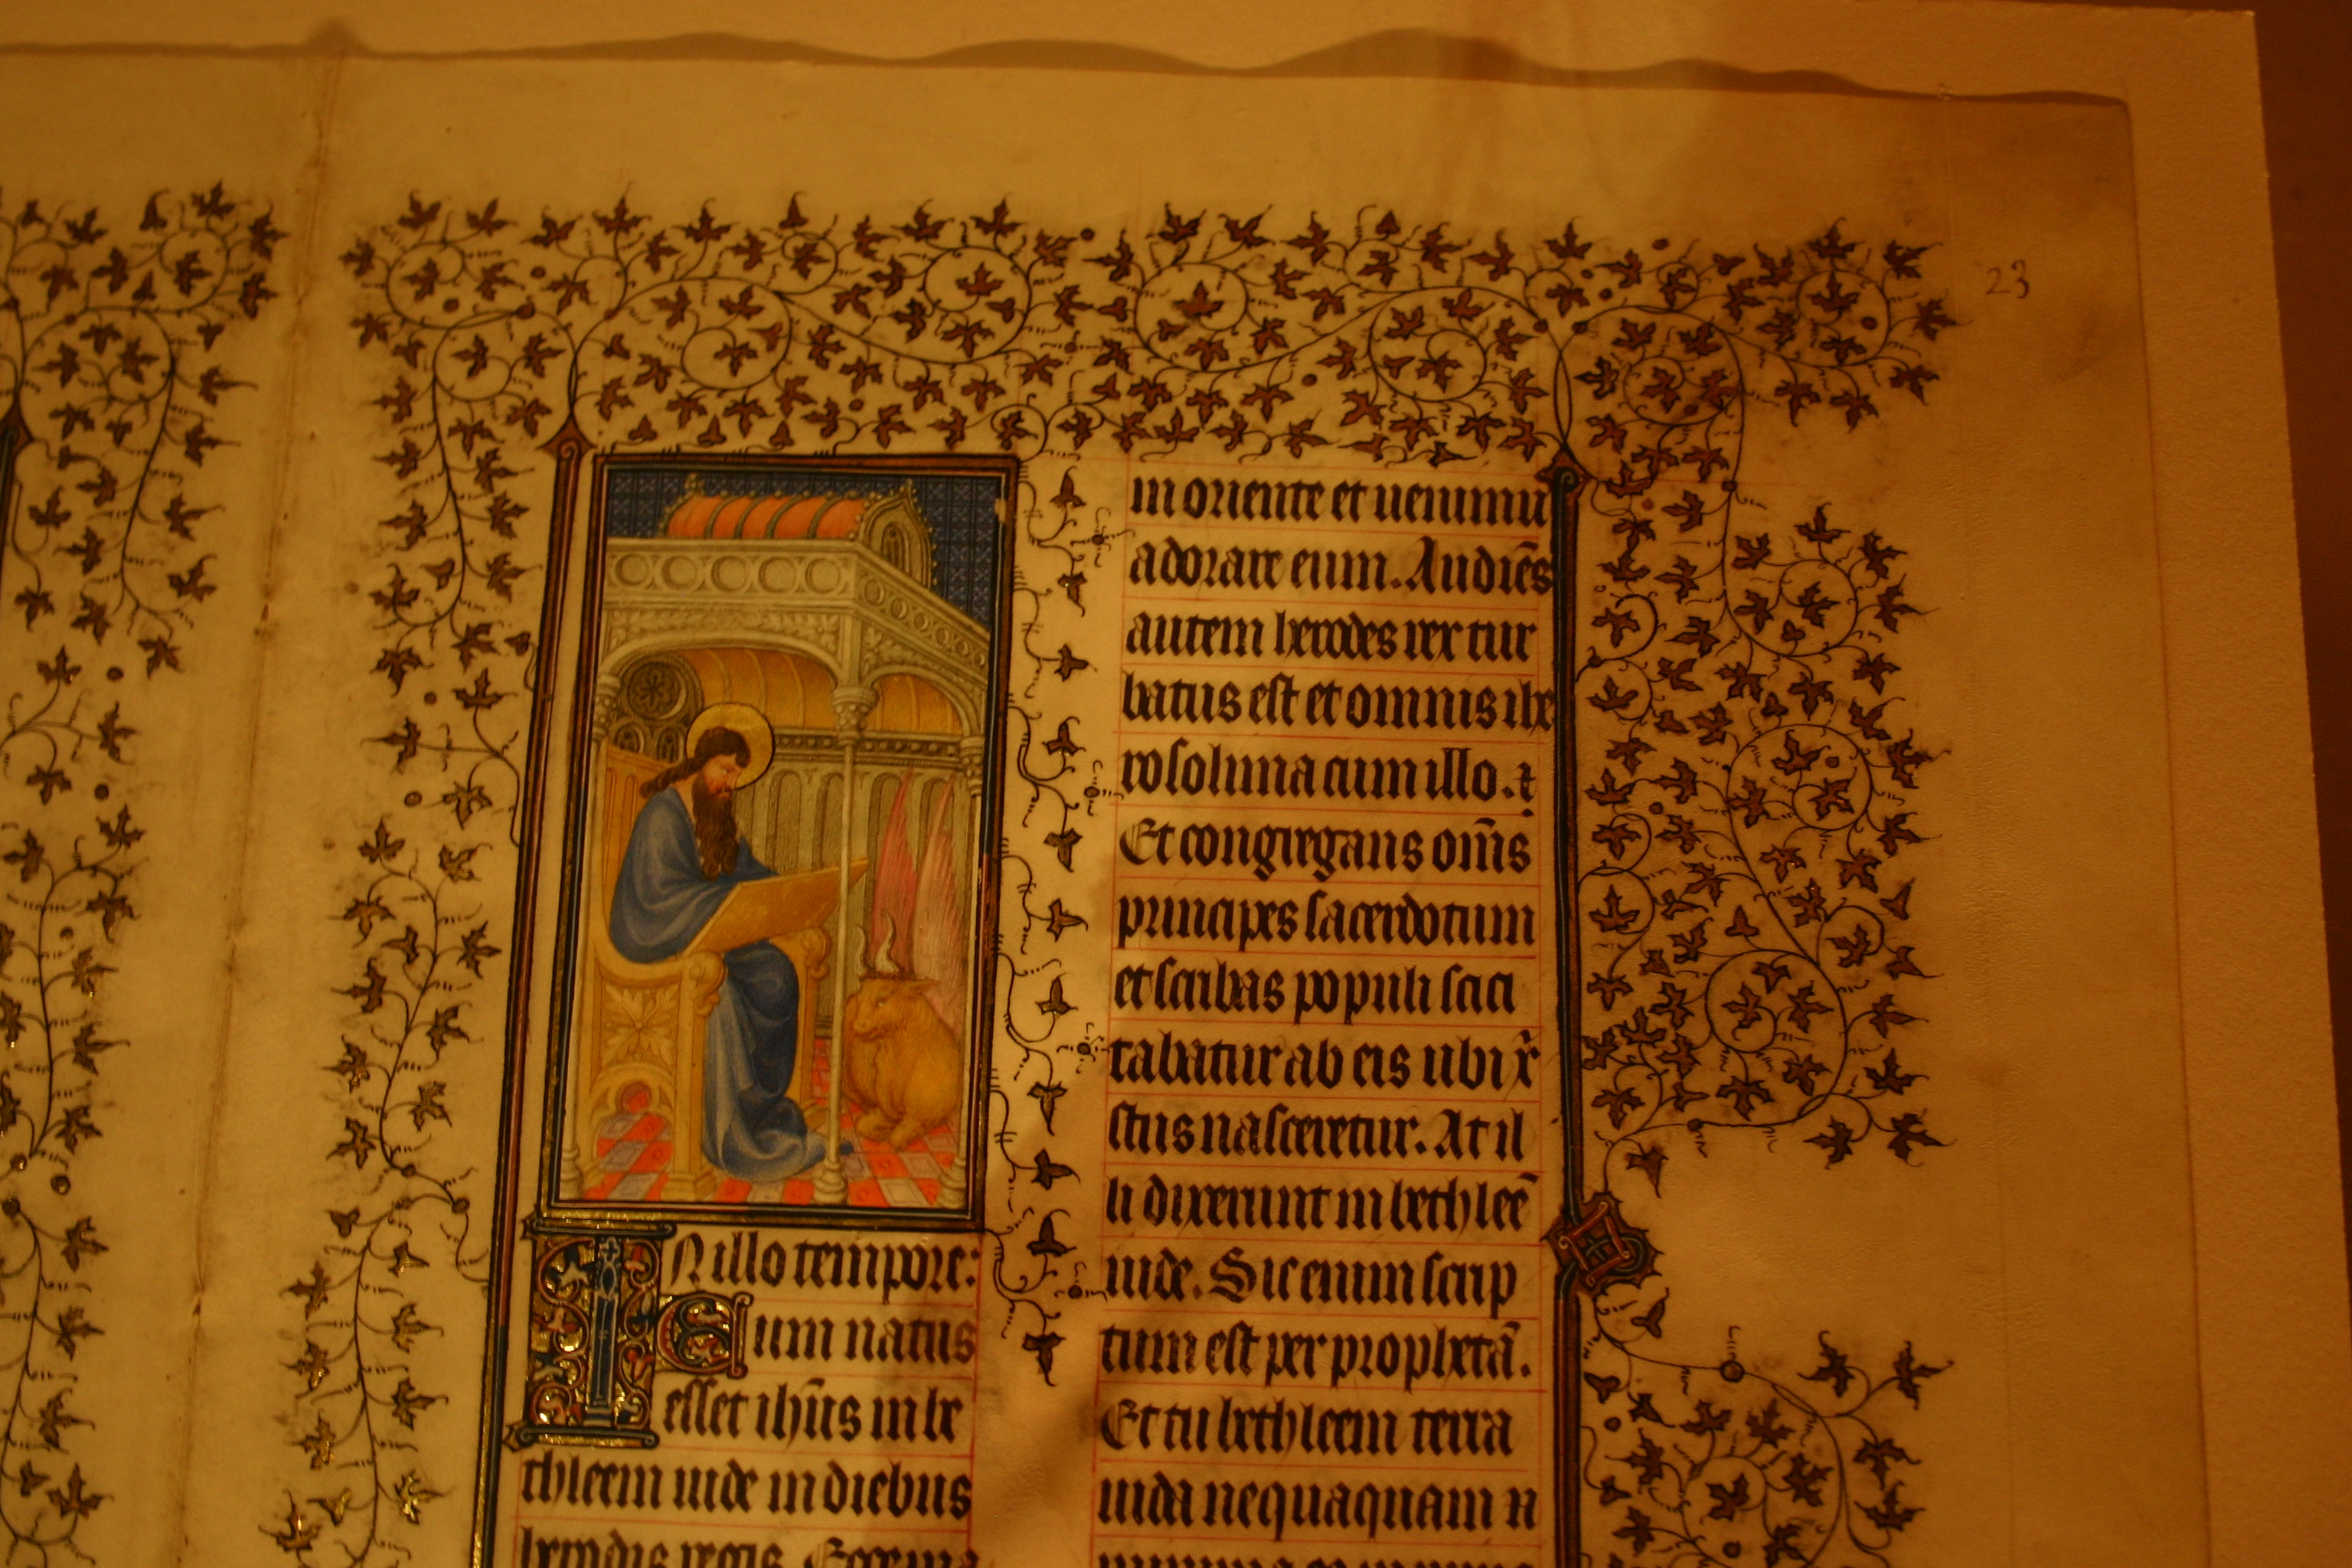 23
In illo tempore:
Cum natus
esset ihūs in be
thleem iude in diebus
herodis regis. Ecce ma
in oriente et uenimus
adorare eum. Audiēs
autem herodes rex tur
batus est et omnis ihe
rosolima cum illo.
Et congregans om̄s
principes sacerdotum
et scribas populi scici
tabatur ab eis ubi xp̄
stus nasceretur. At il
li dixerunt in bethleē
iude. Sic enim scrip
tum est per prophetā.
Et tu bethleem terra
iuda nequaquam